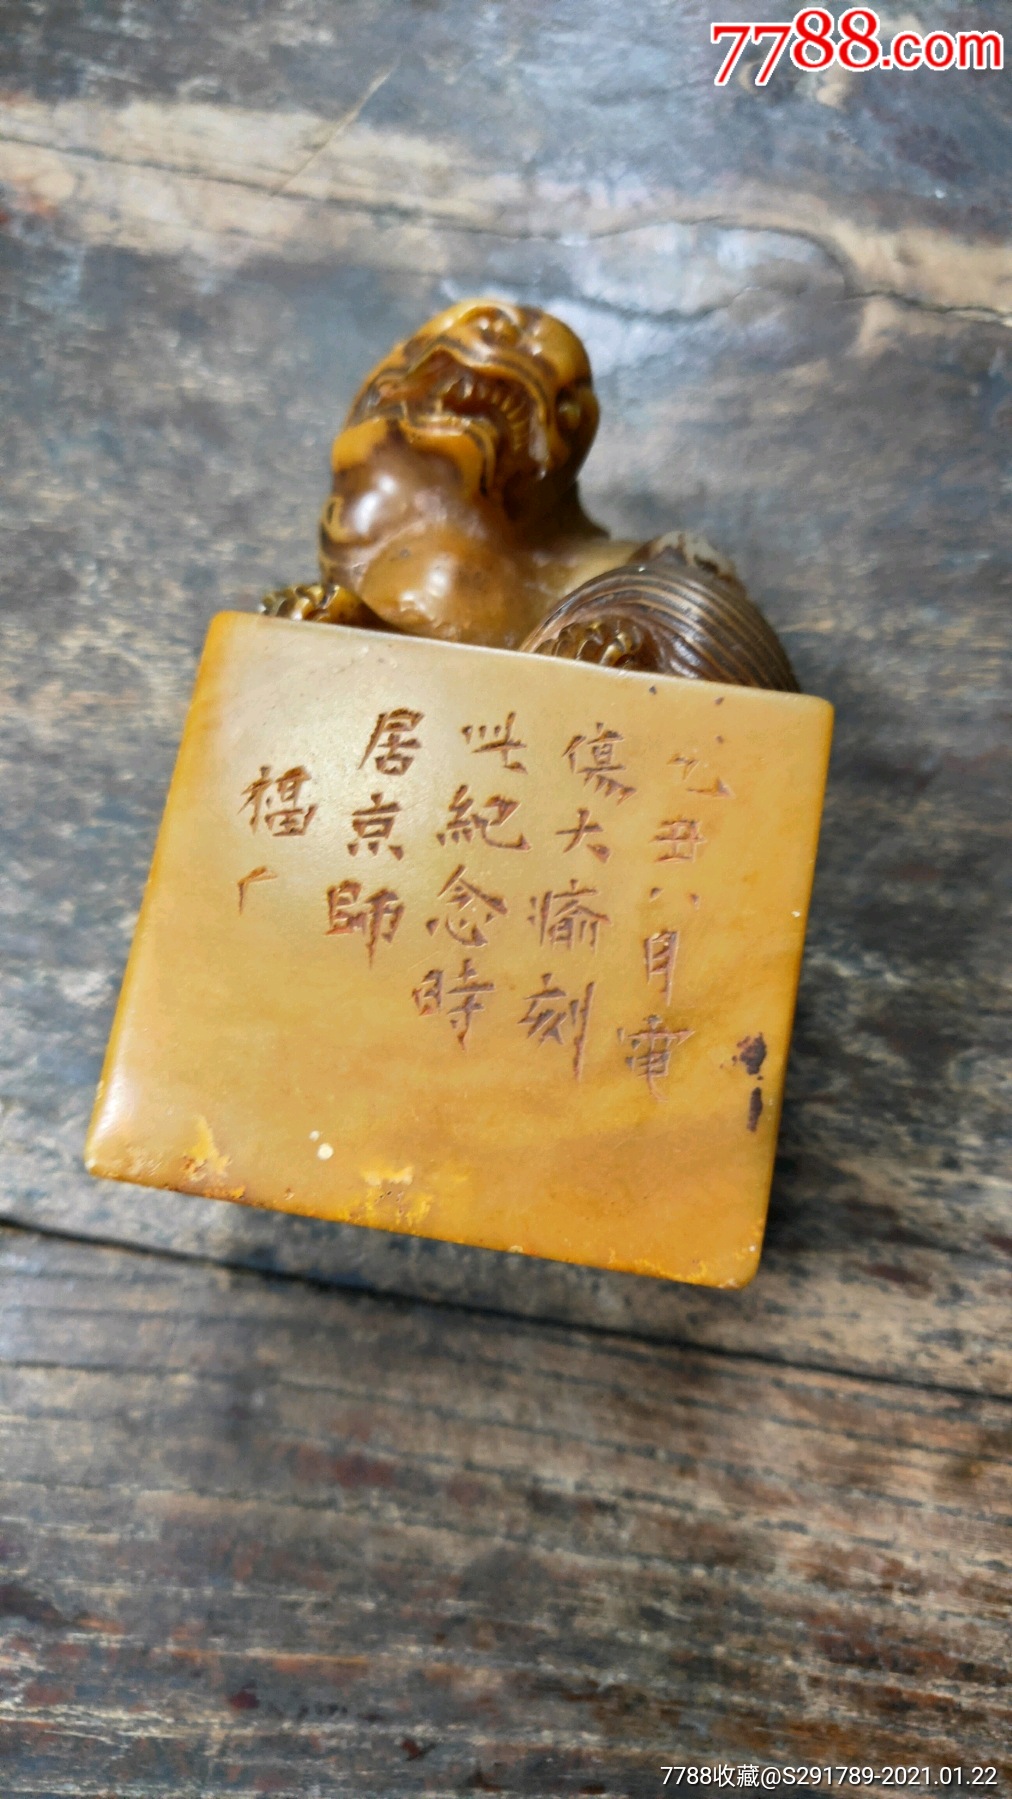 7788.com
乙丑八月電
傷大瘉刻
此紀念時
居京師
福厂
7788收藏@S291789-2021.01.22